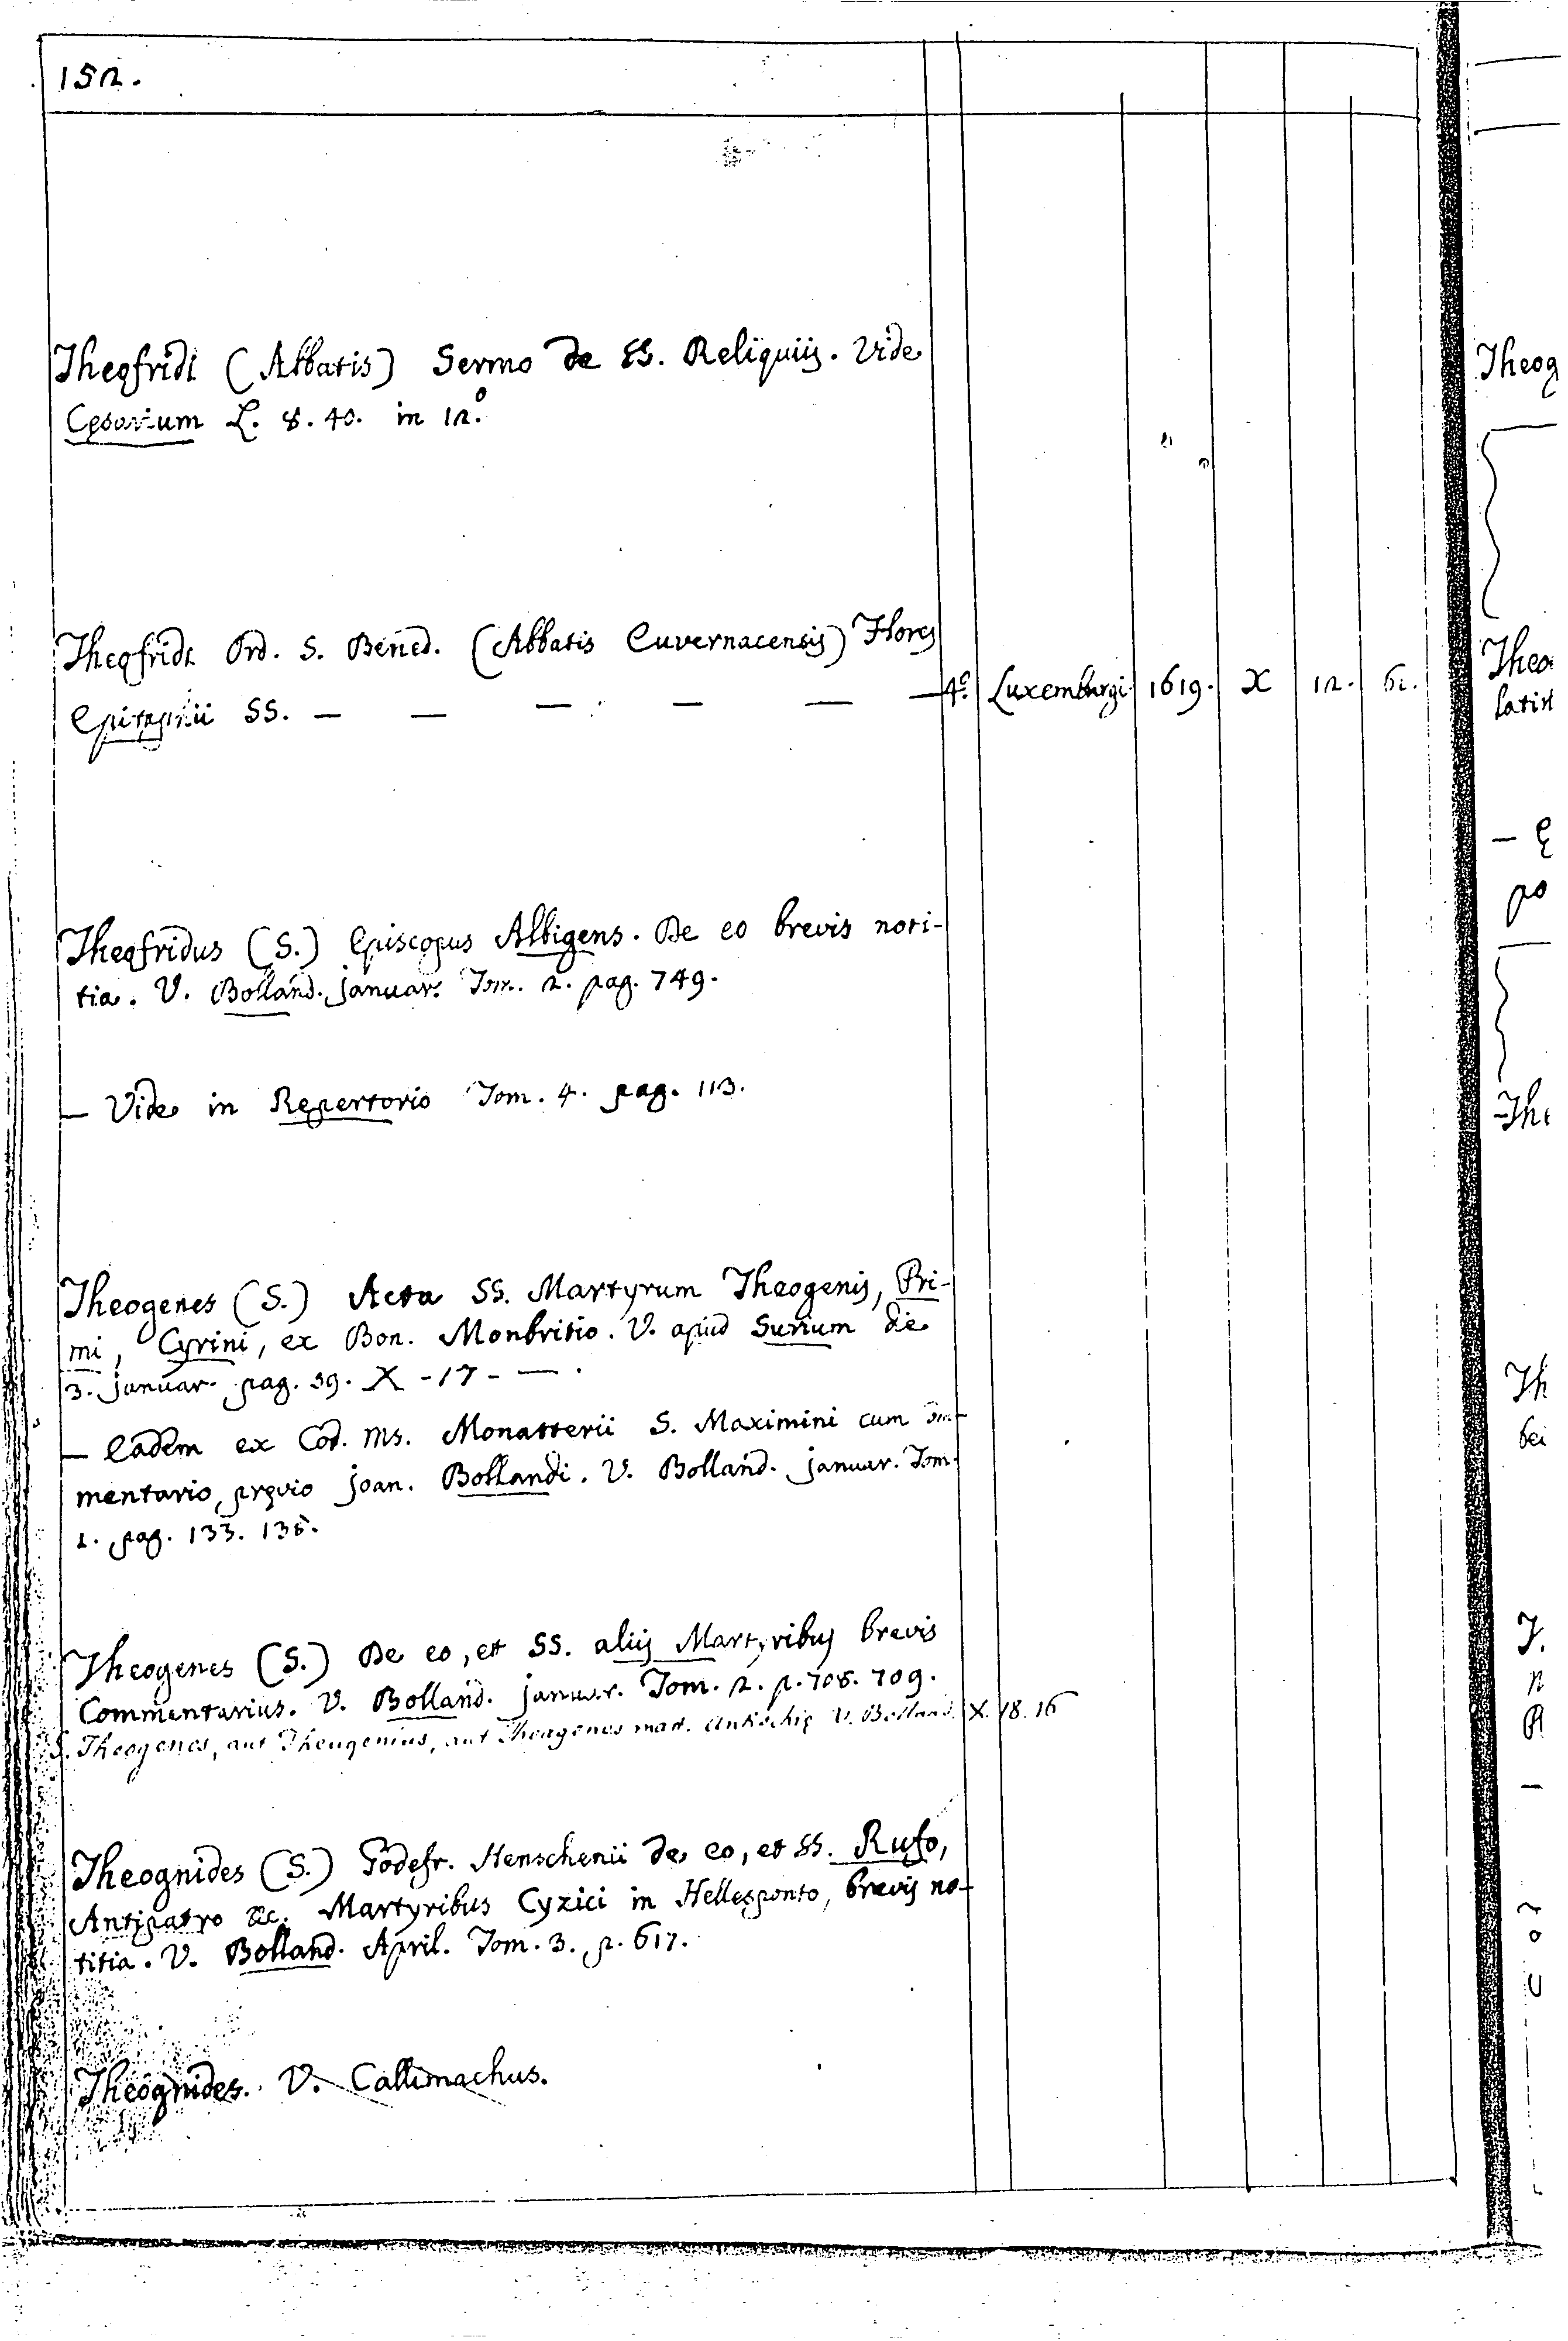 152.
Theofridi (Abbatis) Sermo de SS. Reliquiis. Vide
Cęsarium L. 8. 40. in 12.º
Theofridi Ord. S. Bened. (Abbatis Euvernacensis) Flores
Epitaphii SS. — — — — — — 4º. Luxemburgi 1619. X 12.
Theofridus (S.) Episcopus Albigens. De eo brevis noti-
tia. V. Bolland. Januar. Tom. 2. pag. 749.
— Vide in Repertorio Tom. 4. pag. 113.
Theogenes (S.) Acta SS. Martyrum Theogenis, Pri-
mi, Cyrini, ex Bon. Monbritio. V. apud Surium die
3. Januar. pag. 39. X - 17 - — .
— Eadem ex Cod. Ms. Monasterii S. Maximini cum
mentario pręvio Joan. Bollandi. V. Bolland. Januar. Tom.
1. pag. 133. 135.
Theogenes (S.) De eo, et SS. aliis Martyribus brevis
Commentarius. V. Bolland. Januar. Tom. 2. p. 708. 709.
S. Theogenes, aut Theugenius, aut Theagenes mart. Antiochię V. Bolland. X. 18. 16
Theognides (S.) Godefr. Henschenii de eo, et SS. Rufo,
Antipatro &c. Martyribus Cyzici in Hellesponto, brevis no-
titia. V. Bolland. April. Tom. 3. p. 617.
Theognides. V. Callimachus.
Theog
Theo
latin
po